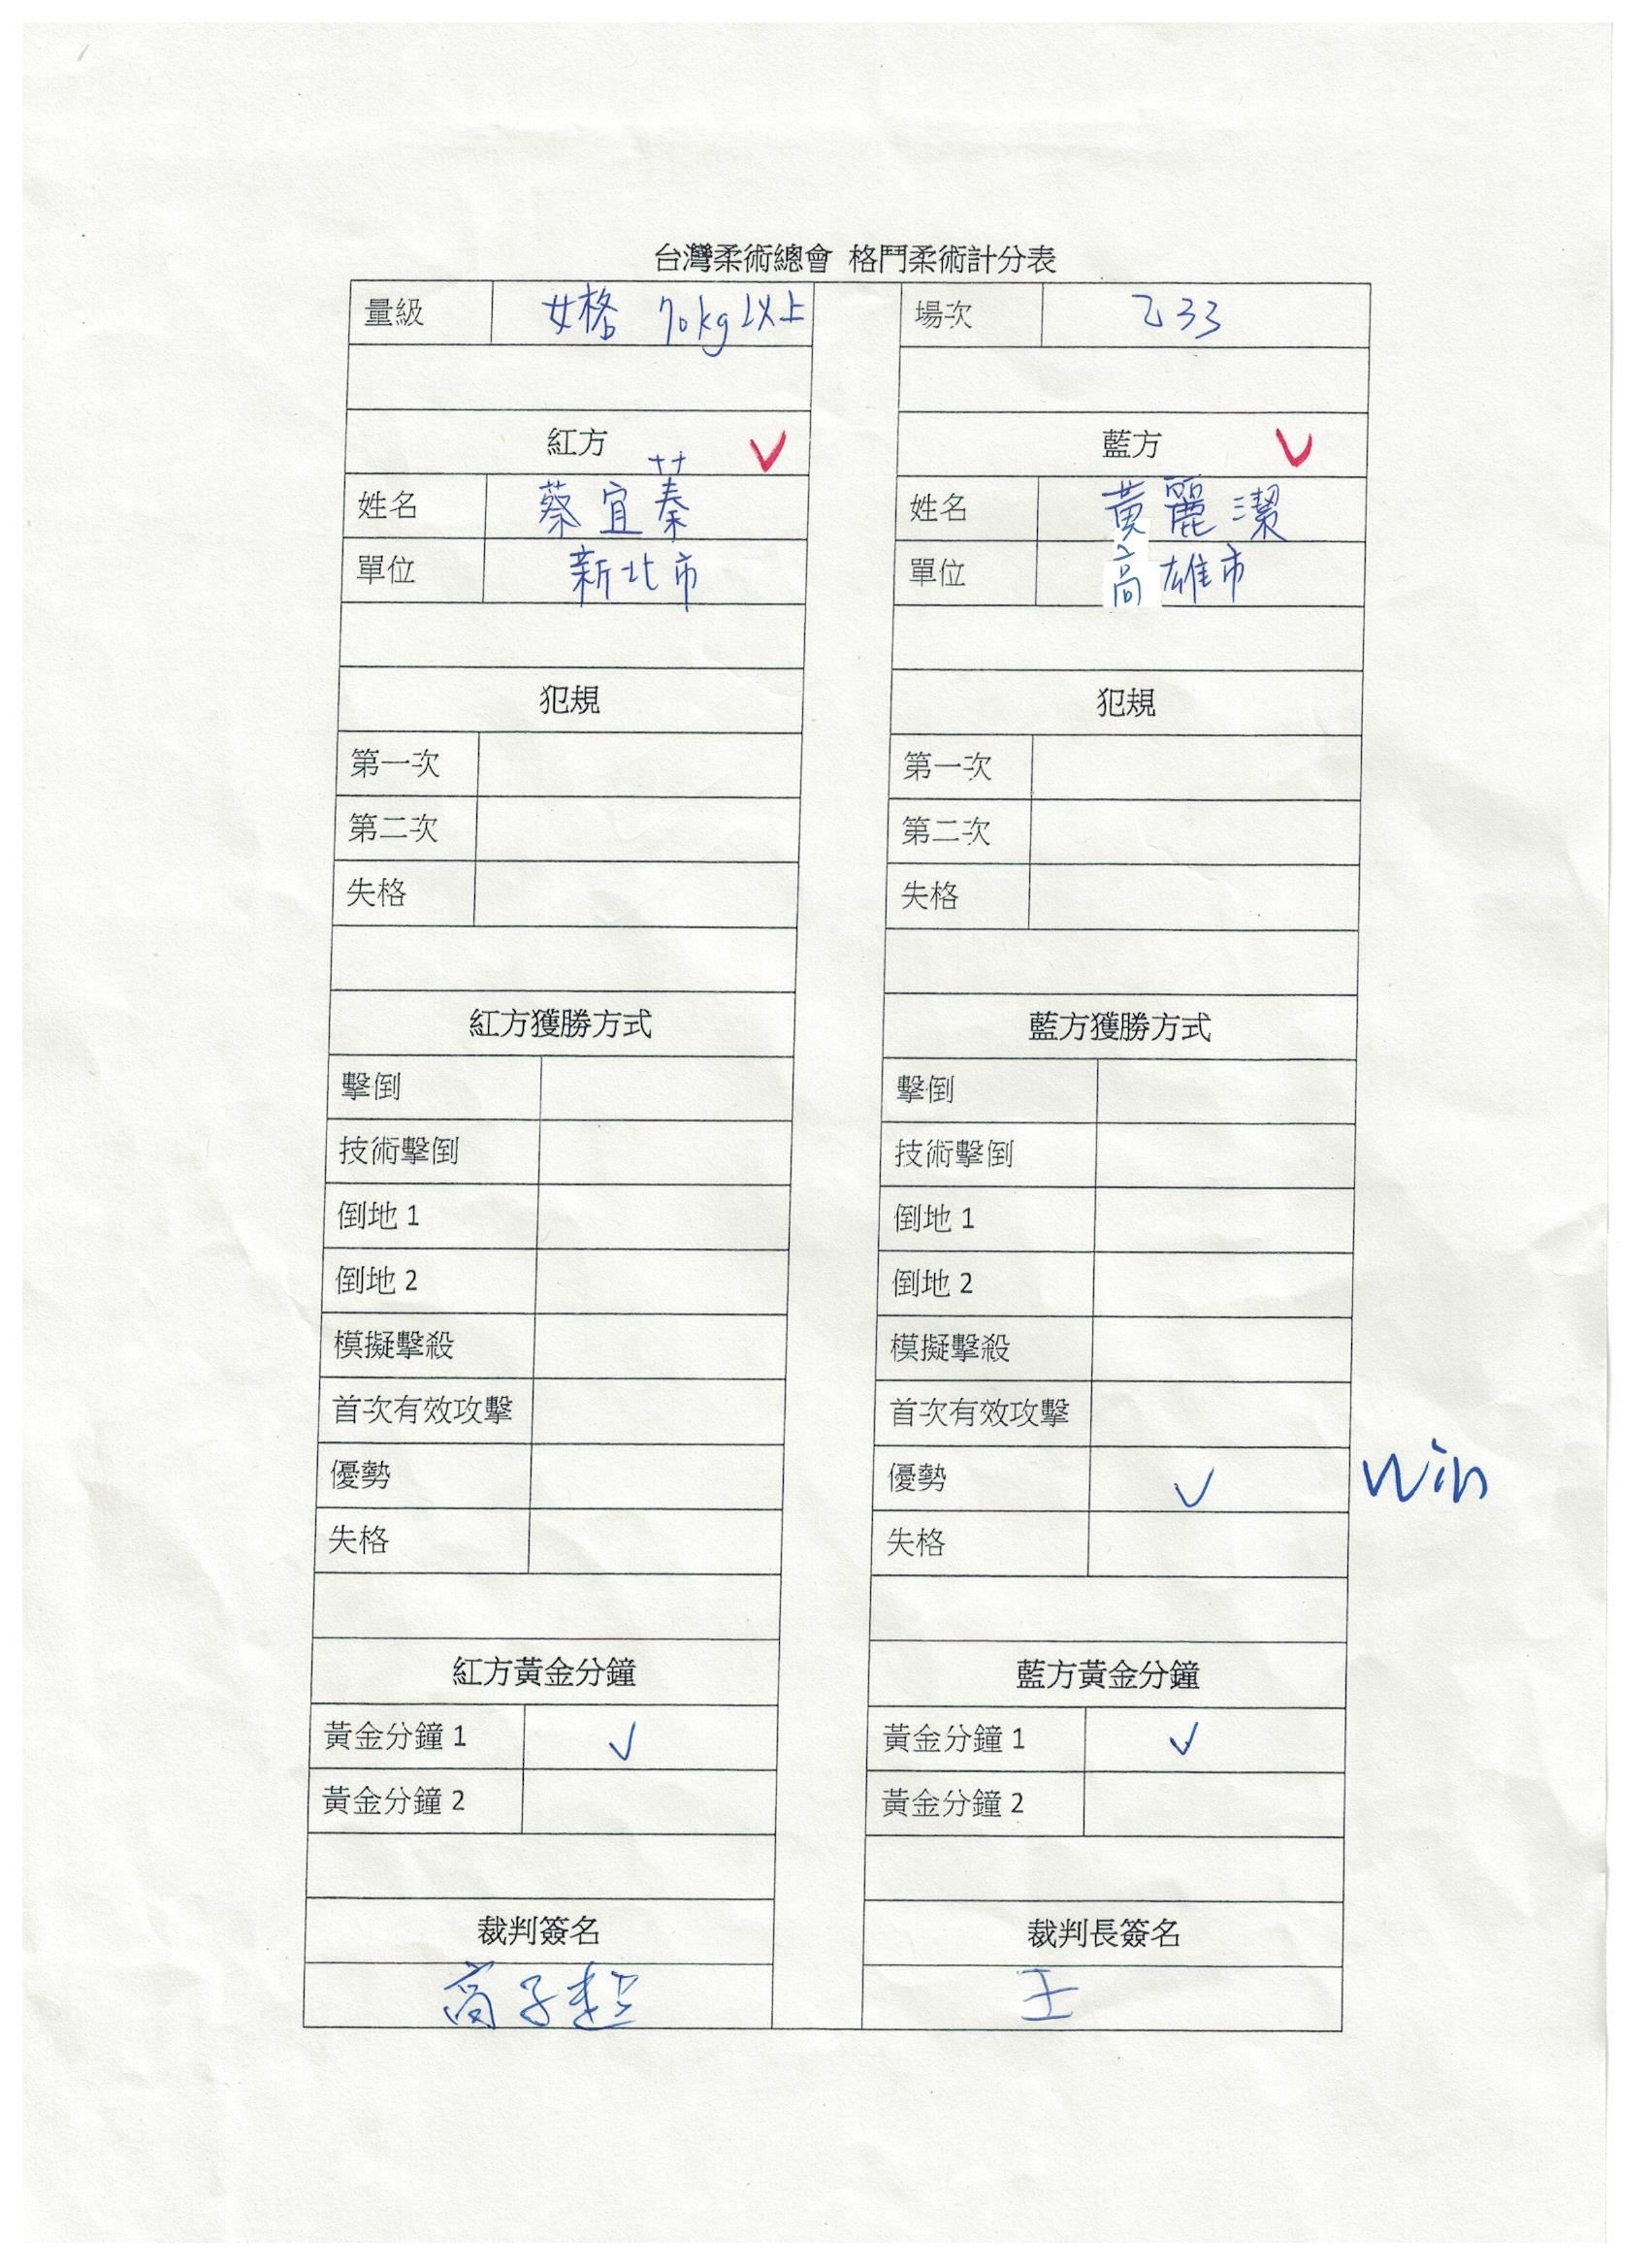 台灣柔術總會 格鬥柔術計分表
量級 女格 70kg以上 場次 乙33
紅方 ✓ 藍方 ✓
姓名 蔡宜蓁 姓名 黃麗潔
單位 新北市 單位 高雄市
犯規 犯規
第一次 第一次
第二次 第二次
失格 失格
紅方獲勝方式 藍方獲勝方式
擊倒 擊倒
技術擊倒 技術擊倒
倒地 1 倒地 1
倒地 2 倒地 2
模擬擊殺 模擬擊殺
首次有效攻擊 首次有效攻擊
優勢 優勢 ✓ Win
失格 失格
紅方黃金分鐘 藍方黃金分鐘
黃金分鐘 1 ✓ 黃金分鐘 1 ✓
黃金分鐘 2 黃金分鐘 2
裁判簽名 裁判長簽名
高子 王